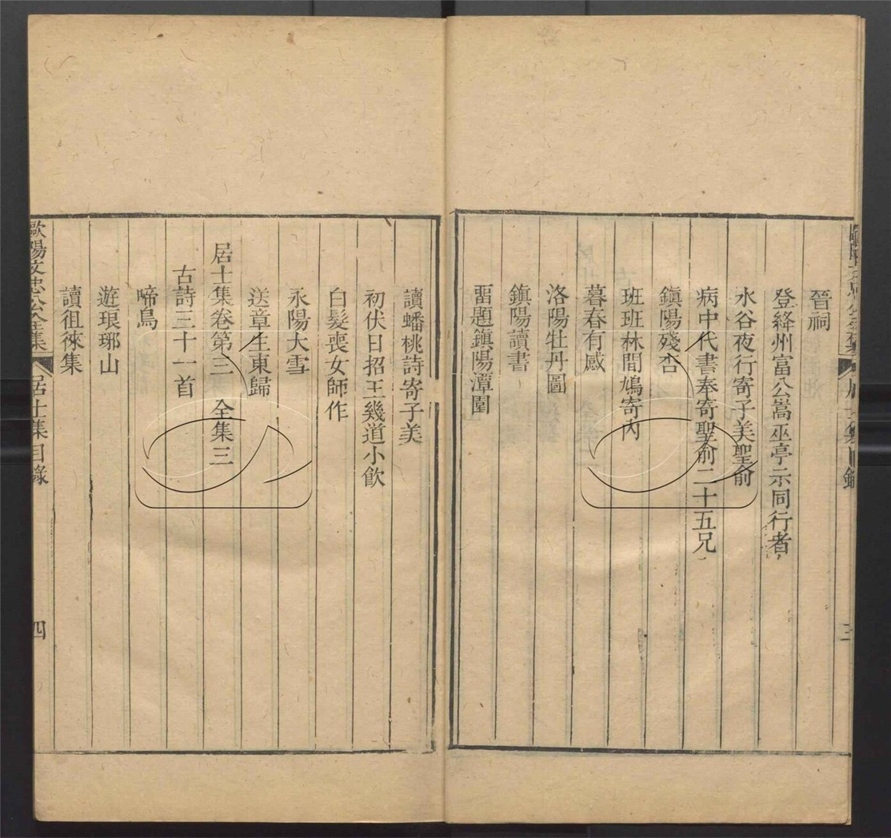 晉祠
登絳州富公嵩巫亭示同行者
水谷夜行寄子美聖俞
病中代書奉寄聖俞二十五兄
鎮陽殘杏
班班林間鳩寄內
暮春有感
洛陽牡丹圖
鎮陽讀書
畱題鎮陽潭園
讀蟠桃詩寄子美
初伏日招王幾道小飲
白髮喪女師作
永陽大雪
送章生東歸
居士集卷第三 全集三
古詩三十一首
啼鳥
遊琅琊山
讀徂徠集
歐陽文忠公全集 居士集目錄 四